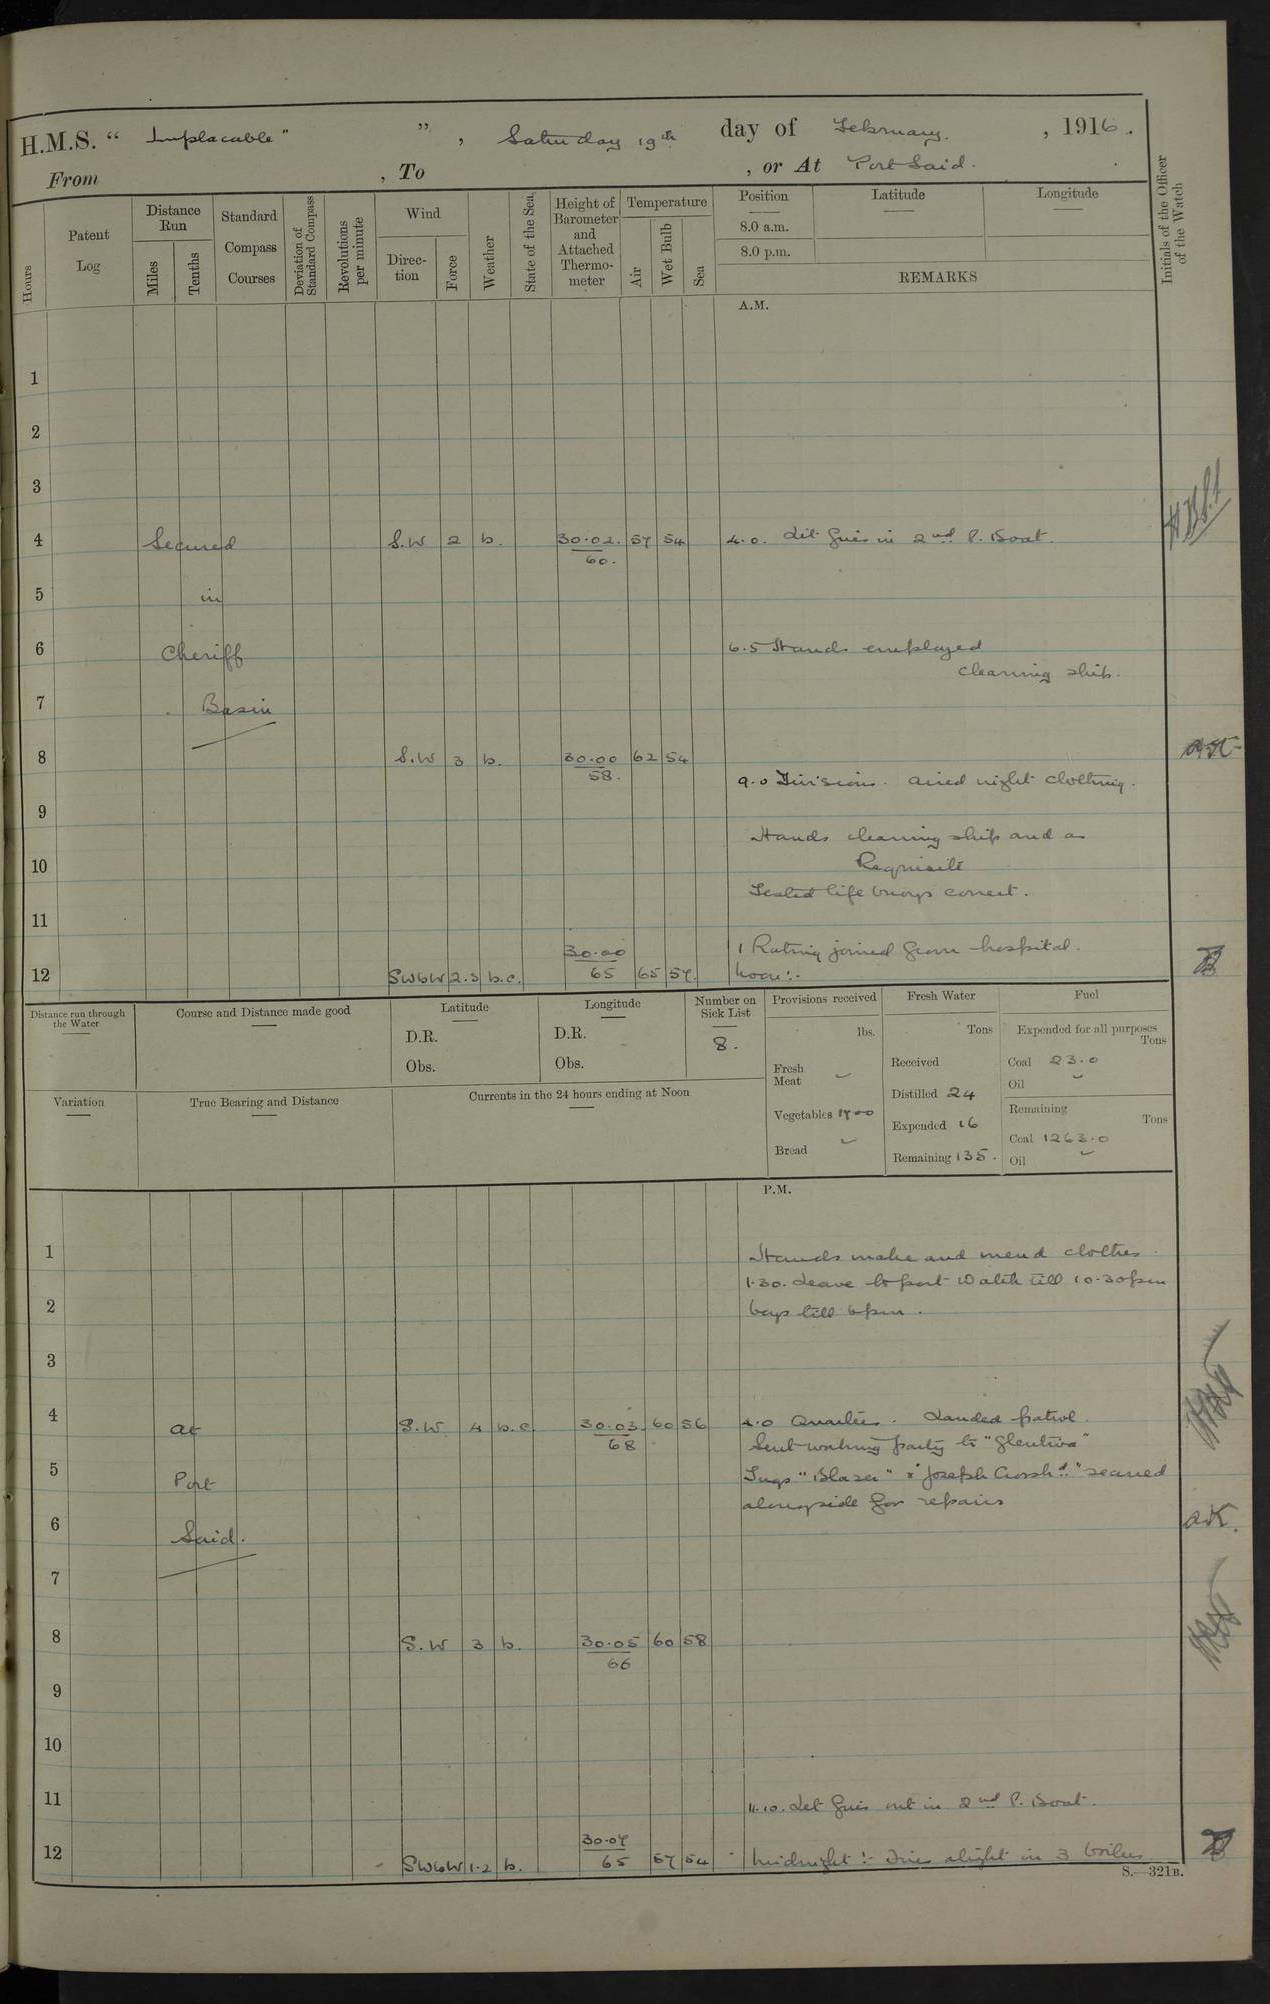 H.M.S. " Implacable" ", Saturday 19th day of February. , 1916.
From , To , or At Port Said.
Hours
Patent Log
Distance Run
Miles
Tenths
Standard Compass Courses
Deviation of Standard Compass
Revolutions per minute
Wind
Direction
Force
Weather
State of the Sea
Height of Barometer and Attached Thermometer
Temperature
Air
Wet Bulb
Sea
Position Latitude Longitude
8.0 a.m.
8.0 p.m.
REMARKS
Initials of the Officer of the Watch
A.M.
1
2
3
4 Secured S.W 2 b. 30.02. 57 54 4.0. Lit fires in 2nd P. Boat.
60.
5 in
6 Cheriff 6.5 Hands employed
cleaning ship.
7 Basin
8 S.W 3 b. 30.00 62 54
58.
9.0 Divisions. aired night clothing.
9
Hands cleaning ship and as
10 Requisite
Tested life buoys correct.
11
1 Rating joined from hospital.
30.00
12 SWbW 2.3 b.c. 65 65 57. Noon:-
Distance run through the Water
Course and Distance made good
Latitude
D.R.
Obs.
Longitude
D.R.
Obs.
Number on Sick List
8.
Provisions received
lbs.
Fresh Meat
Vegetables 1700
Bread
Fresh Water
Tons
Received
Distilled 24
Expended 16
Remaining 135.
Fuel
Expended for all purposes
Tons
Coal 23.0
Oil
Remaining
Tons
Coal 1263.0
Oil
Variation
True Bearing and Distance
Currents in the 24 hours ending at Noon
P.M.
1 Hands make and mend clothes.
1.30. Leave to port Watch till 10-30pm
2 boys till 6pm.
3
4 At S.W. 4 b.c. 30.03. 60 56 4.0 Quarters. Landed patrol.
68
Sent working party to "
5 Port Tugs "Blazer" & "Joseph " secured
alongside for repairs
6 Said.
7
8 S.W 3 b. 30.05 60 58
66
9
10
11 11.10. Let fires out in 2nd P. Boat.
30.07
12 SWbW 1.2 b. 65 57 54 Midnight:- Fires alight in 3 boilers
S.—321B.